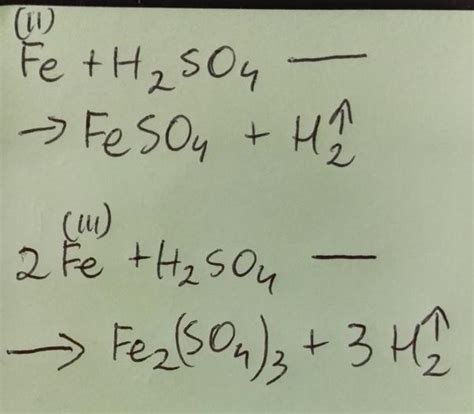 (II)
Fe + H₂SO₄ —
→ FeSO₄ + H₂↑
(III)
2Fe + H₂SO₄ —
→ Fe₂(SO₄)₃ + 3H₂↑